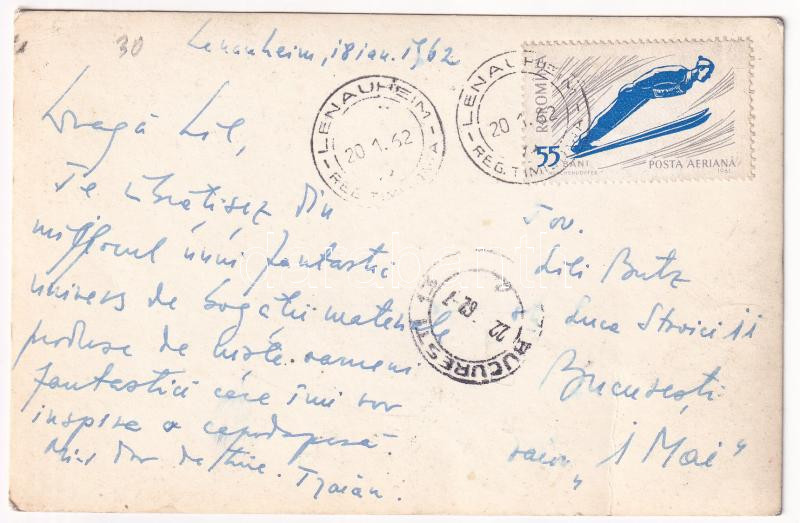 30
Lenauheim, 18 ian. 1962
Dragă Lil,
Te îmbrățișez din
mijlocul unui fantastic
univers de bogății materiale
produse de niște oameni
fantastici care îmi vor
inspira o capodoperă.
Mi-e dor de tine. Traian.
LENAUHEIM
20.1.62
REG. TIMIȘOARA
LENAUHEIM
20.1.62
REG. TIM
R.P.ROMÎNĂ
55 BANI
POSTA AERIANĂ
1961
BUCUREȘTI
22 -1 62
Tov.
Lili Butz
Luca Stroici 11
București
raion „1 Mai"